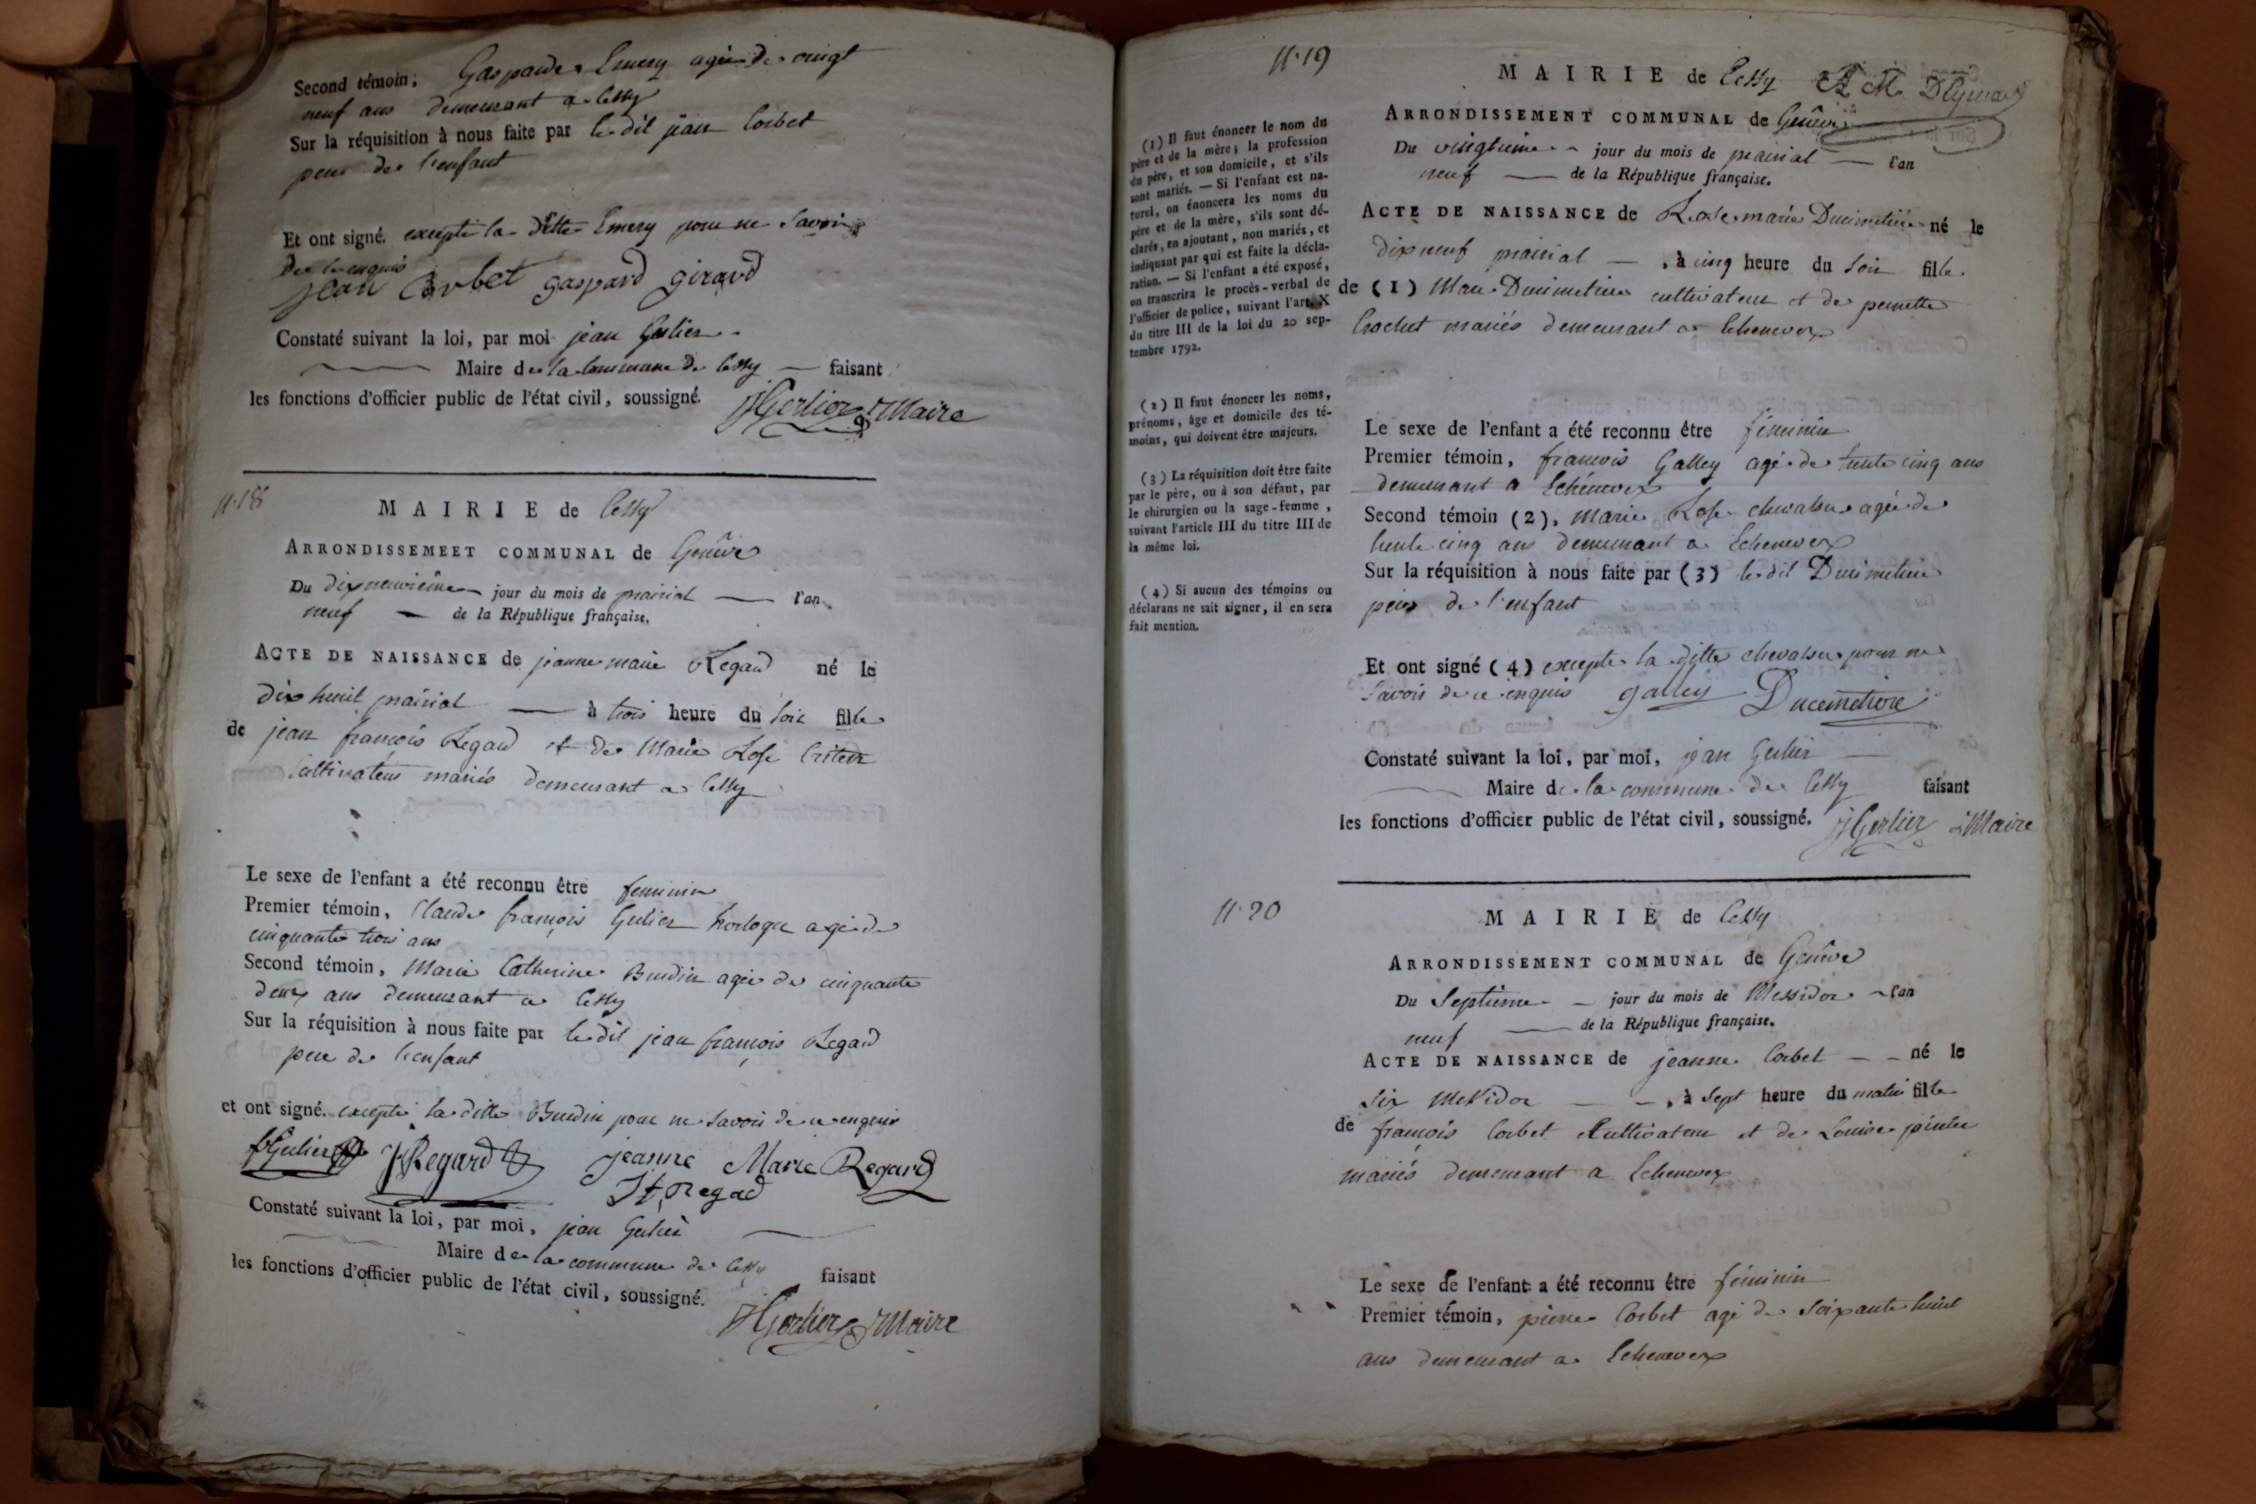 Second témoin; Gasparde Emery agée de vingt
neuf ans demeurant a Cessy
Sur la réquisition à nous faite par le dit jean Corbet
pere de l'enfant
Et ont signé. excepté la ditte Emery pour ne savoir
de ce enquis
jean Corbet gaspard girard
Constaté suivant la loi, par moi jean Gerlier
Maire de la commune de Cessy faisant
les fonctions d'officier public de l'état civil, soussigné.
JGerlier Maire
n.18
MAIRIE de Cessy
ARRONDISSEMEET COMMUNAL de Genêve
Du dixneuvieme jour du mois de prairial l'an
neuf de la République française.
ACTE DE NAISSANCE de jeanne marie Regard né le
dix huit prairial à trois heure du soir fille
de jean françois Regard et de Marie Rose
Cultivateur mariés demeurant a Cessy
Le sexe de l'enfant a été reconnu être feminin
Premier témoin, Claude françois Gerlier horloger agé de
cinquante trois ans
Second témoin, Marie Catherine Burdin agée de cinquante
deux ans demeurant a Cessy
Sur la réquisition à nous faite par le dit jean françois Regard
pere de l'enfant
et ont signé. excepté la ditte Burdin pour ne savoir de ce enquis
Gerlier JRegard jeanne Marie Regard
Regad
Constaté suivant la loi, par moi, jean Gerlier
Maire de la commune de Cessy faisant
les fonctions d'officier public de l'état civil, soussigné.
JGerlier Maire
n.19
(1) Il faut énoncer le nom du
père et de la mère; la profession
du père, et son domicile, et s'ils
sont mariés. — Si l'enfant est na-
turel, on énoncera les noms du
père et de la mère, s'ils sont dé-
clarés, en ajoutant, non mariés, et
indiquant par qui est faite la décla-
ration. — Si l'enfant a été exposé,
on transcrira le procès-verbal de
l'officier de police, suivant l'art. X
du titre III de la loi du 20 sep-
tembre 1792.
(2) Il faut énoncer les noms,
prénoms, âge et domicile des té-
moins, qui doivent être majeurs.
(3) La réquisition doit être faite
par le père, ou à son défaut, par
le chirurgien ou la sage-femme,
suivant l'article III du titre III de
la même loi.
(4) Si aucun des témoins ou
déclarans ne sait signer, il en sera
fait mention.
MAIRIE de Cessy
ARRONDISSEMENT COMMUNAL de Genêve
Du vingtieme jour du mois de prairial l'an
neuf de la République française.
ACTE DE NAISSANCE de Rose marie Ducimetière né le
dix neuf prairial, à cinq heure du soir fille
de (1) Marc Ducimetiere cultivateur et de pernette
Crochet mariés demeurant a Echenevex
Le sexe de l'enfant a été reconnu être féminin
Premier témoin, françois Galley agé de trente cinq ans
demeurant a Echénevex
Second témoin (2), marie Rose chevalier agée de
trente cinq ans demeurant a Echenevex
Sur la réquisition à nous faite par (3) le dit Ducimetiere
père de l'enfant
Et ont signé (4) excepté la ditte chevalier pour ne
savoir de ce enquis galley Ducimetiere
Constaté suivant la loi, par moi, jean Gerlier
Maire de la commune de Cessy faisant
les fonctions d'officier public de l'état civil, soussigné. JGerlier Maire
n.20
MAIRIE de Cessy
ARRONDISSEMENT COMMUNAL de Genêve
Du Septième jour du mois de Messidor l'an
neuf de la République française.
ACTE DE NAISSANCE de jeanne Corbet né le
Six Messidor, à Sept heure du matin fille
de françois Corbet Cultivateur et de Louise
mariés demeurant a Echenevex
Le sexe de l'enfant a été reconnu être féminin
Premier témoin, pierre Corbet agé de soixante huit
ans demeurant a Echenevex